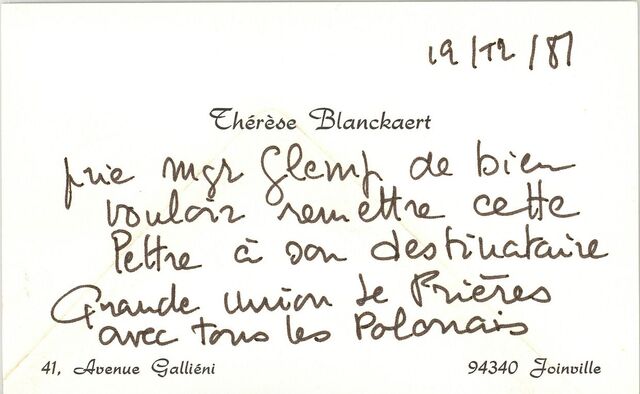 19/12/81
Thérèse Blanckaert
prie Mgr Glemp de bien
vouloir remettre cette
lettre à son destinataire
Grande union de Prières
avec tous les Polonais
41, Avenue Galliéni 94340 Joinville